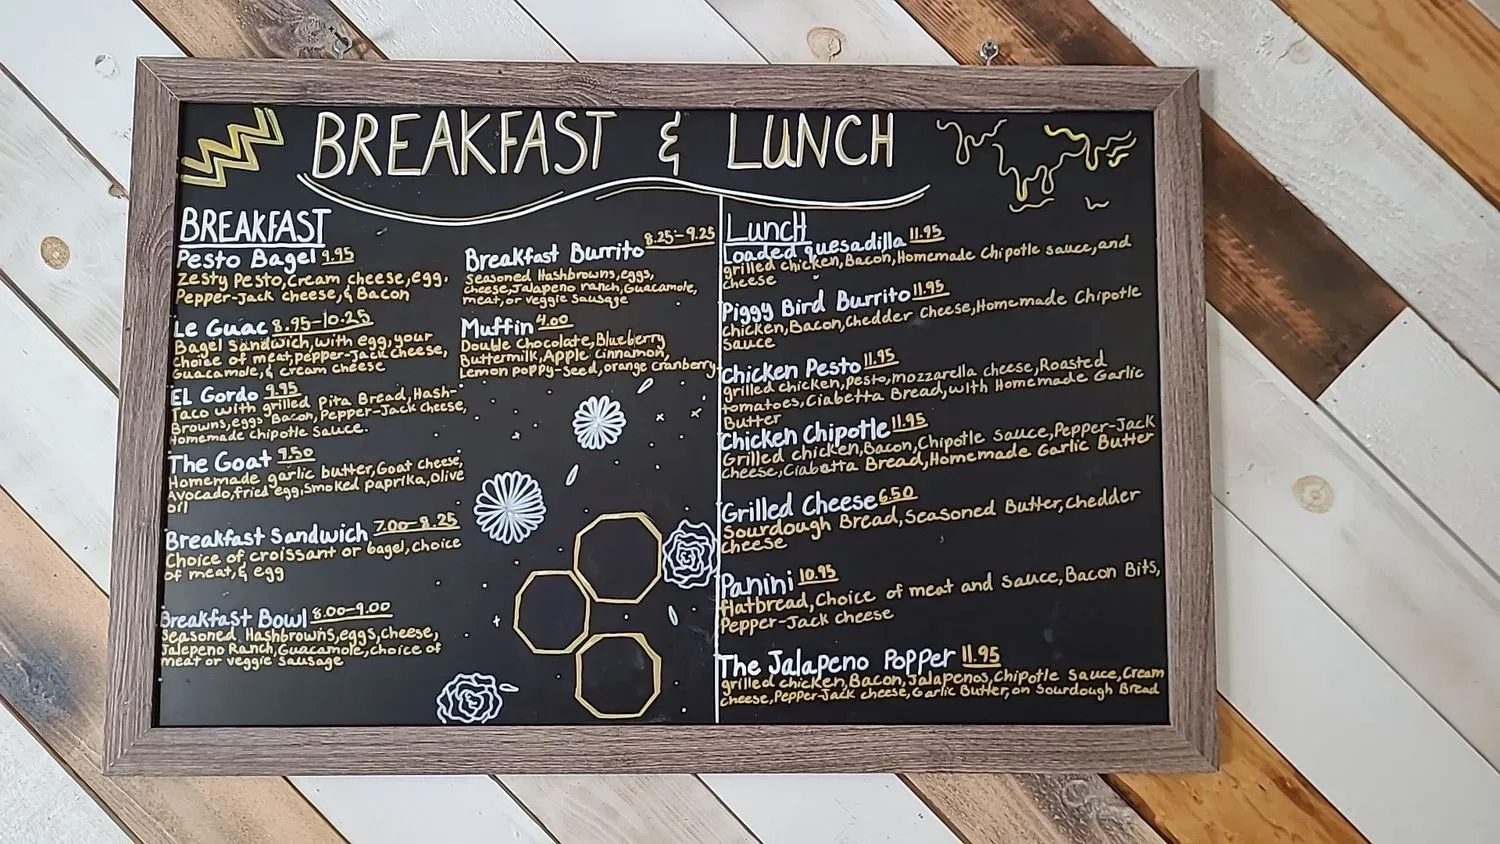 BREAKFAST & LUNCH
BREAKFAST
Pesto Bagel 9.95
Zesty Pesto, cream cheese, egg,
Pepper-Jack cheese, & Bacon
Le Guac 8.95-10.25
Bagel Sandwich, with egg, your
choice of meat, pepper-Jack cheese,
Guacamole, & cream cheese
EL Gordo 9.95
Taco with grilled Pita Bread, Hash-
Browns, eggs Bacon, Pepper-Jack Cheese,
Homemade chipotle Sauce.
The Goat 7.50
Homemade garlic butter, Goat cheese,
Avocado, fried egg, Smoked paprika, Olive
oil
Breakfast Sandwich 7.00-8.25
Choice of croissant or bagel, choice
of meat, & egg
Breakfast Bowl 8.00-9.00
Seasoned Hashbrowns, eggs, cheese,
Jalepeno Ranch, Guacamole, choice of
meat or veggie Sausage
Breakfast Burrito 8.25-9.25
Seasoned Hashbrowns, eggs,
cheese, Jalapeno ranch, Guacamole,
meat, or veggie Sausage
Muffin 4.00
Double Chocolate, Blueberry
Buttermilk, Apple Cinnamon,
Lemon poppy-seed, orange cranberry
LuncH
Loaded quesadilla 11.95
grilled chicken, Bacon, Homemade Chipotle sauce, and
cheese
Piggy Bird Burrito 11.95
chicken, Bacon, Chedder Cheese, Homemade Chipotle
Sauce
Chicken Pesto 11.95
grilled chicken, Pesto, mozzarella cheese, Roasted
tomatoes, Ciabetta Bread, with Homemade Garlic
Butter
Chicken Chipotle 11.95
Grilled chicken, Bacon, Chipotle Sauce, Pepper-Jack
cheese, Ciabatta Bread, Homemade Garlic Butter
Grilled Cheese 6.50
Sourdough Bread, Seasoned Butter, Chedder
cheese
Panini 10.95
flatbread, Choice of meat and Sauce, Bacon Bits,
Pepper-Jack cheese
The Jalapeno Popper 11.95
grilled chicken, Bacon, Jalapenos, Chipotle Sauce, Cream
cheese, Pepper-Jack cheese, Garlic Butter, on Sourdough Bread